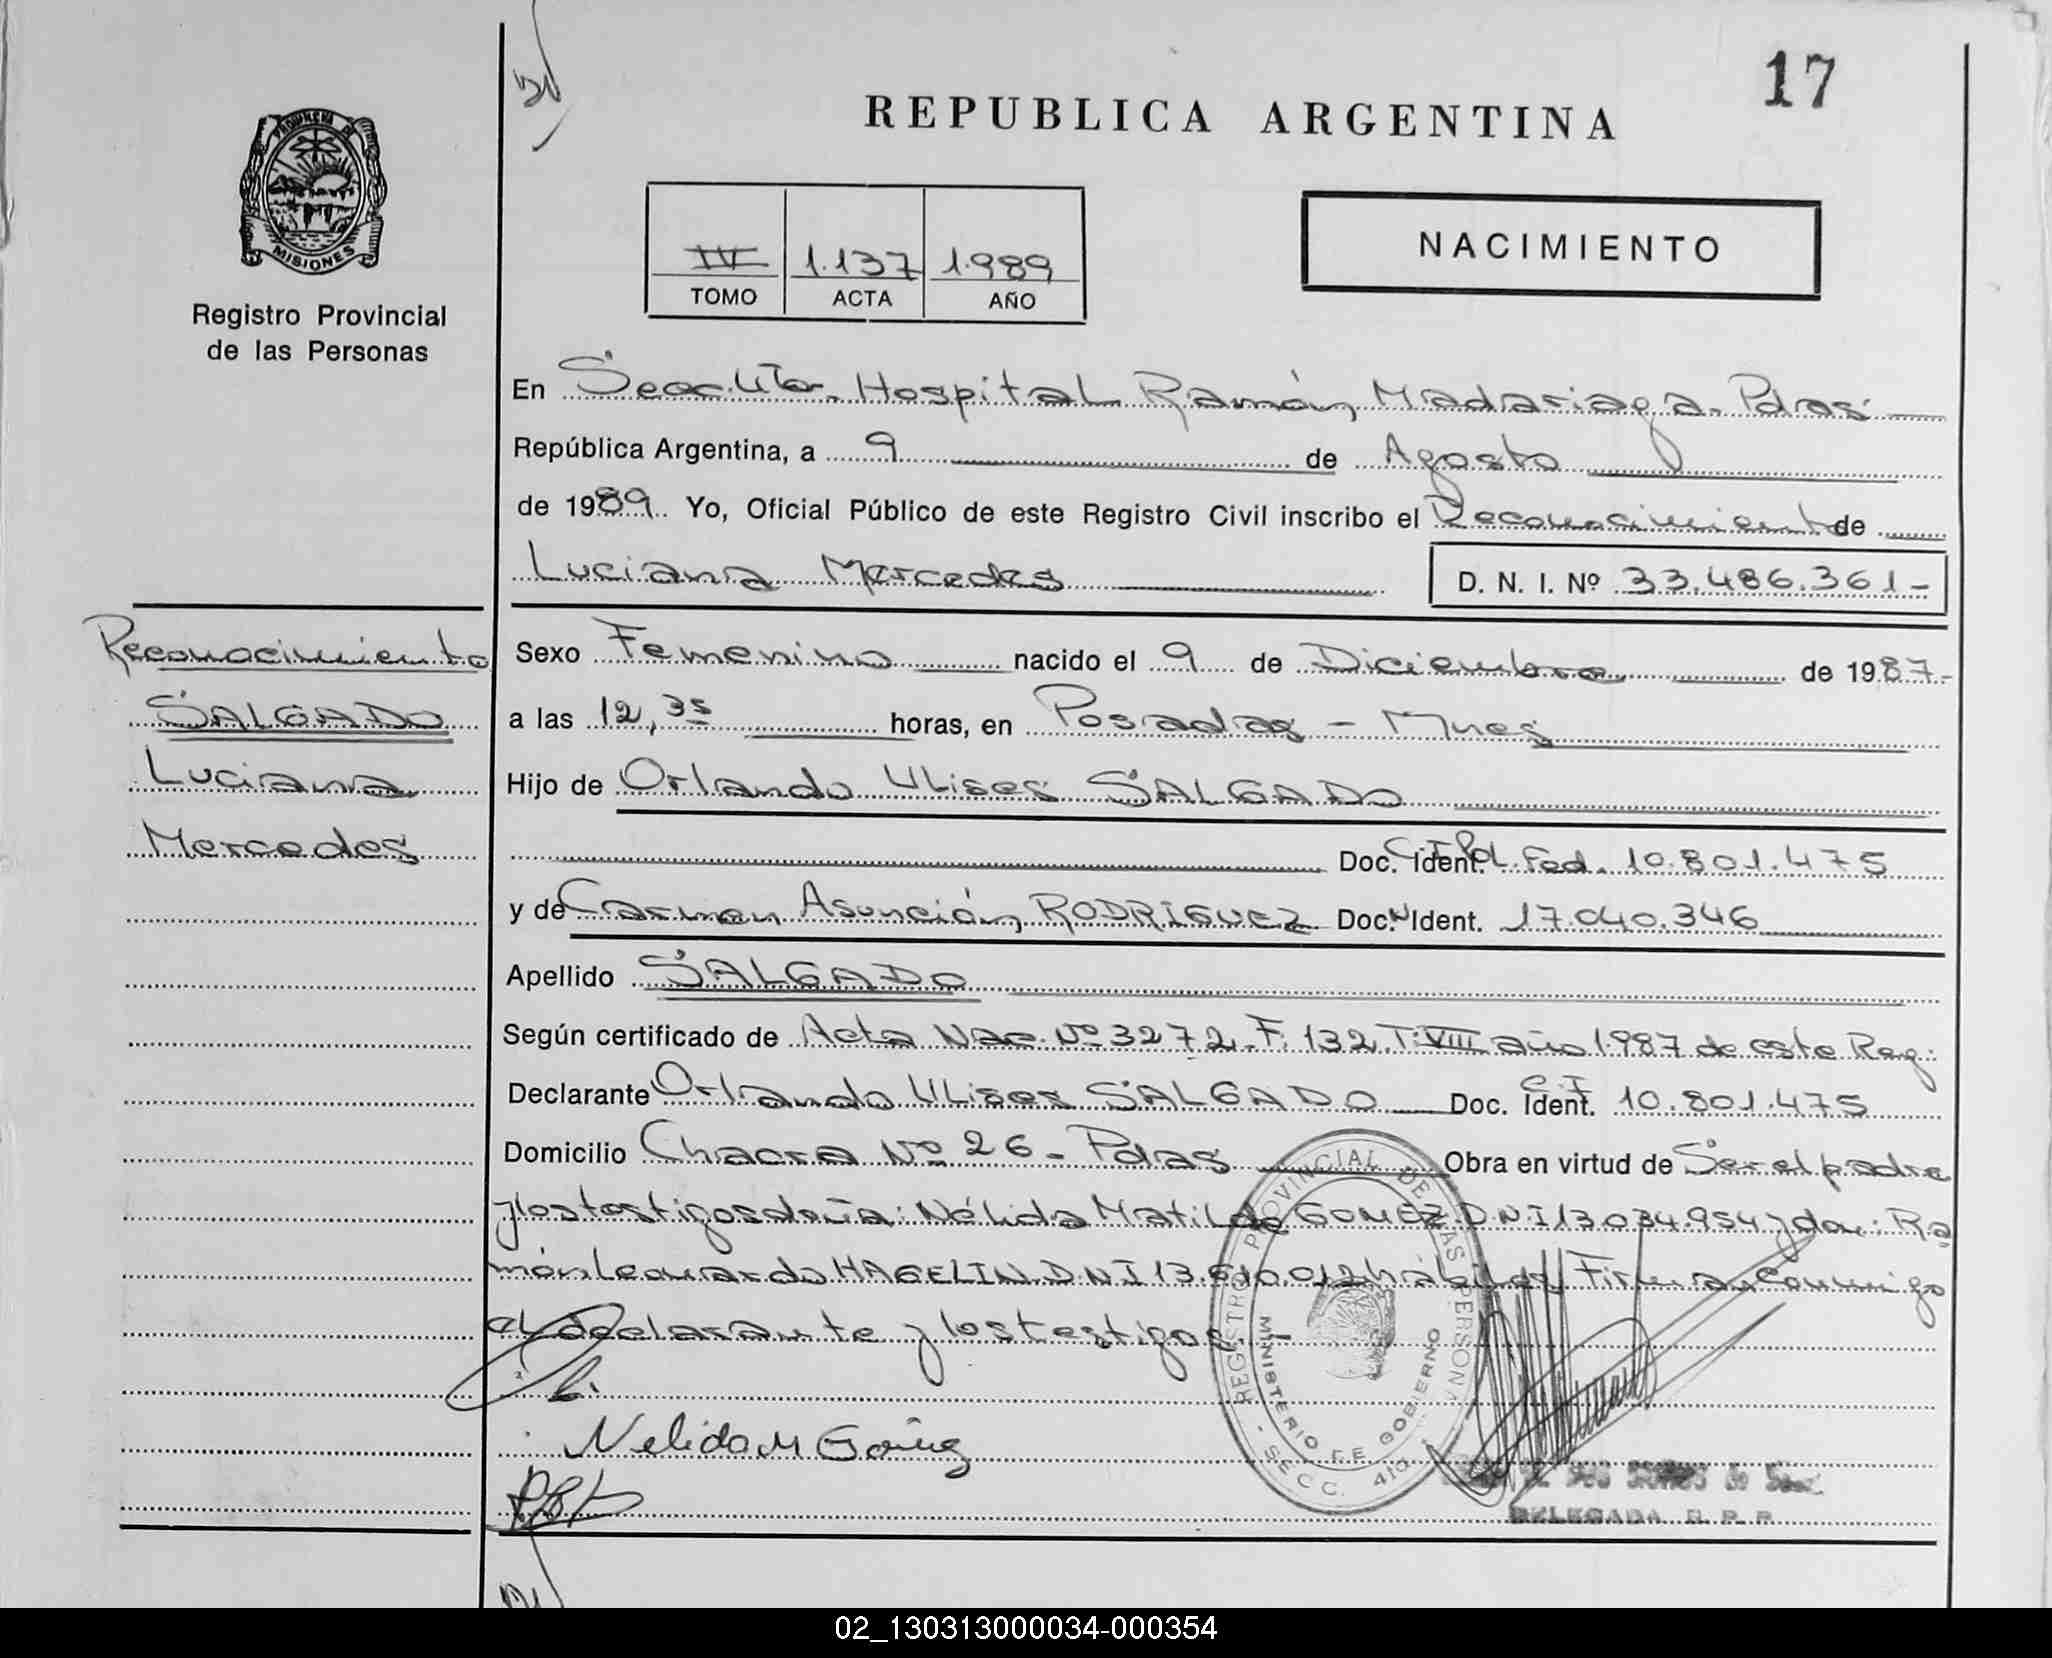 17
REPUBLICA ARGENTINA
PROVINCIA DE
MISIONES
Registro Provincial
de las Personas
IV 1.137 1.989
TOMO ACTA AÑO
NACIMIENTO
En Secc. 4ta. Hospital Ramón Madariaga. Pdas
República Argentina, a 9 de Agosto
de 1989. Yo, Oficial Público de este Registro Civil inscribo el Reconocimiento de
Luciana Mercedes D. N. I. Nº 33.486.361-
Reconocimiento
SALGADO
Luciana
Mercedes
Sexo Femenino nacido el 9 de Diciembre de 1987-
a las 12,35 horas, en Posadas - Mnes
Hijo de Orlando Ulises SALGADO
Doc. Ident. C.I. Pol. Fed. 10.801.475
y de Carmen Asunción RODRIGUEZ Doc. Ident. 17.040.346
Apellido SALGADO
Según certificado de Acta Nac. Nº 3272. F. 132. T: VIII año 1987 de este Reg:
Declarante Orlando Ulises SALGADO Doc. Ident. C.I 10.801.475
Domicilio Chacra Nº 26 - Pdas Obra en virtud de Ser el padre
y los testigos doña: Nélida Matilde GOMEZ D.N.I 13.034.954 y don: Ra
món Leonardo HAGELIN D.N.I 13.610.012 hábiles Firman Conmigo
el declarante y los testigos.-
REGISTRO PROVINCIAL DE LAS PERSONAS
MINISTERIO DE GOBIERNO
- SECC. 4ta -
Nelida M Gomez
DELEGADA R. P. P.
02_130313000034-000354